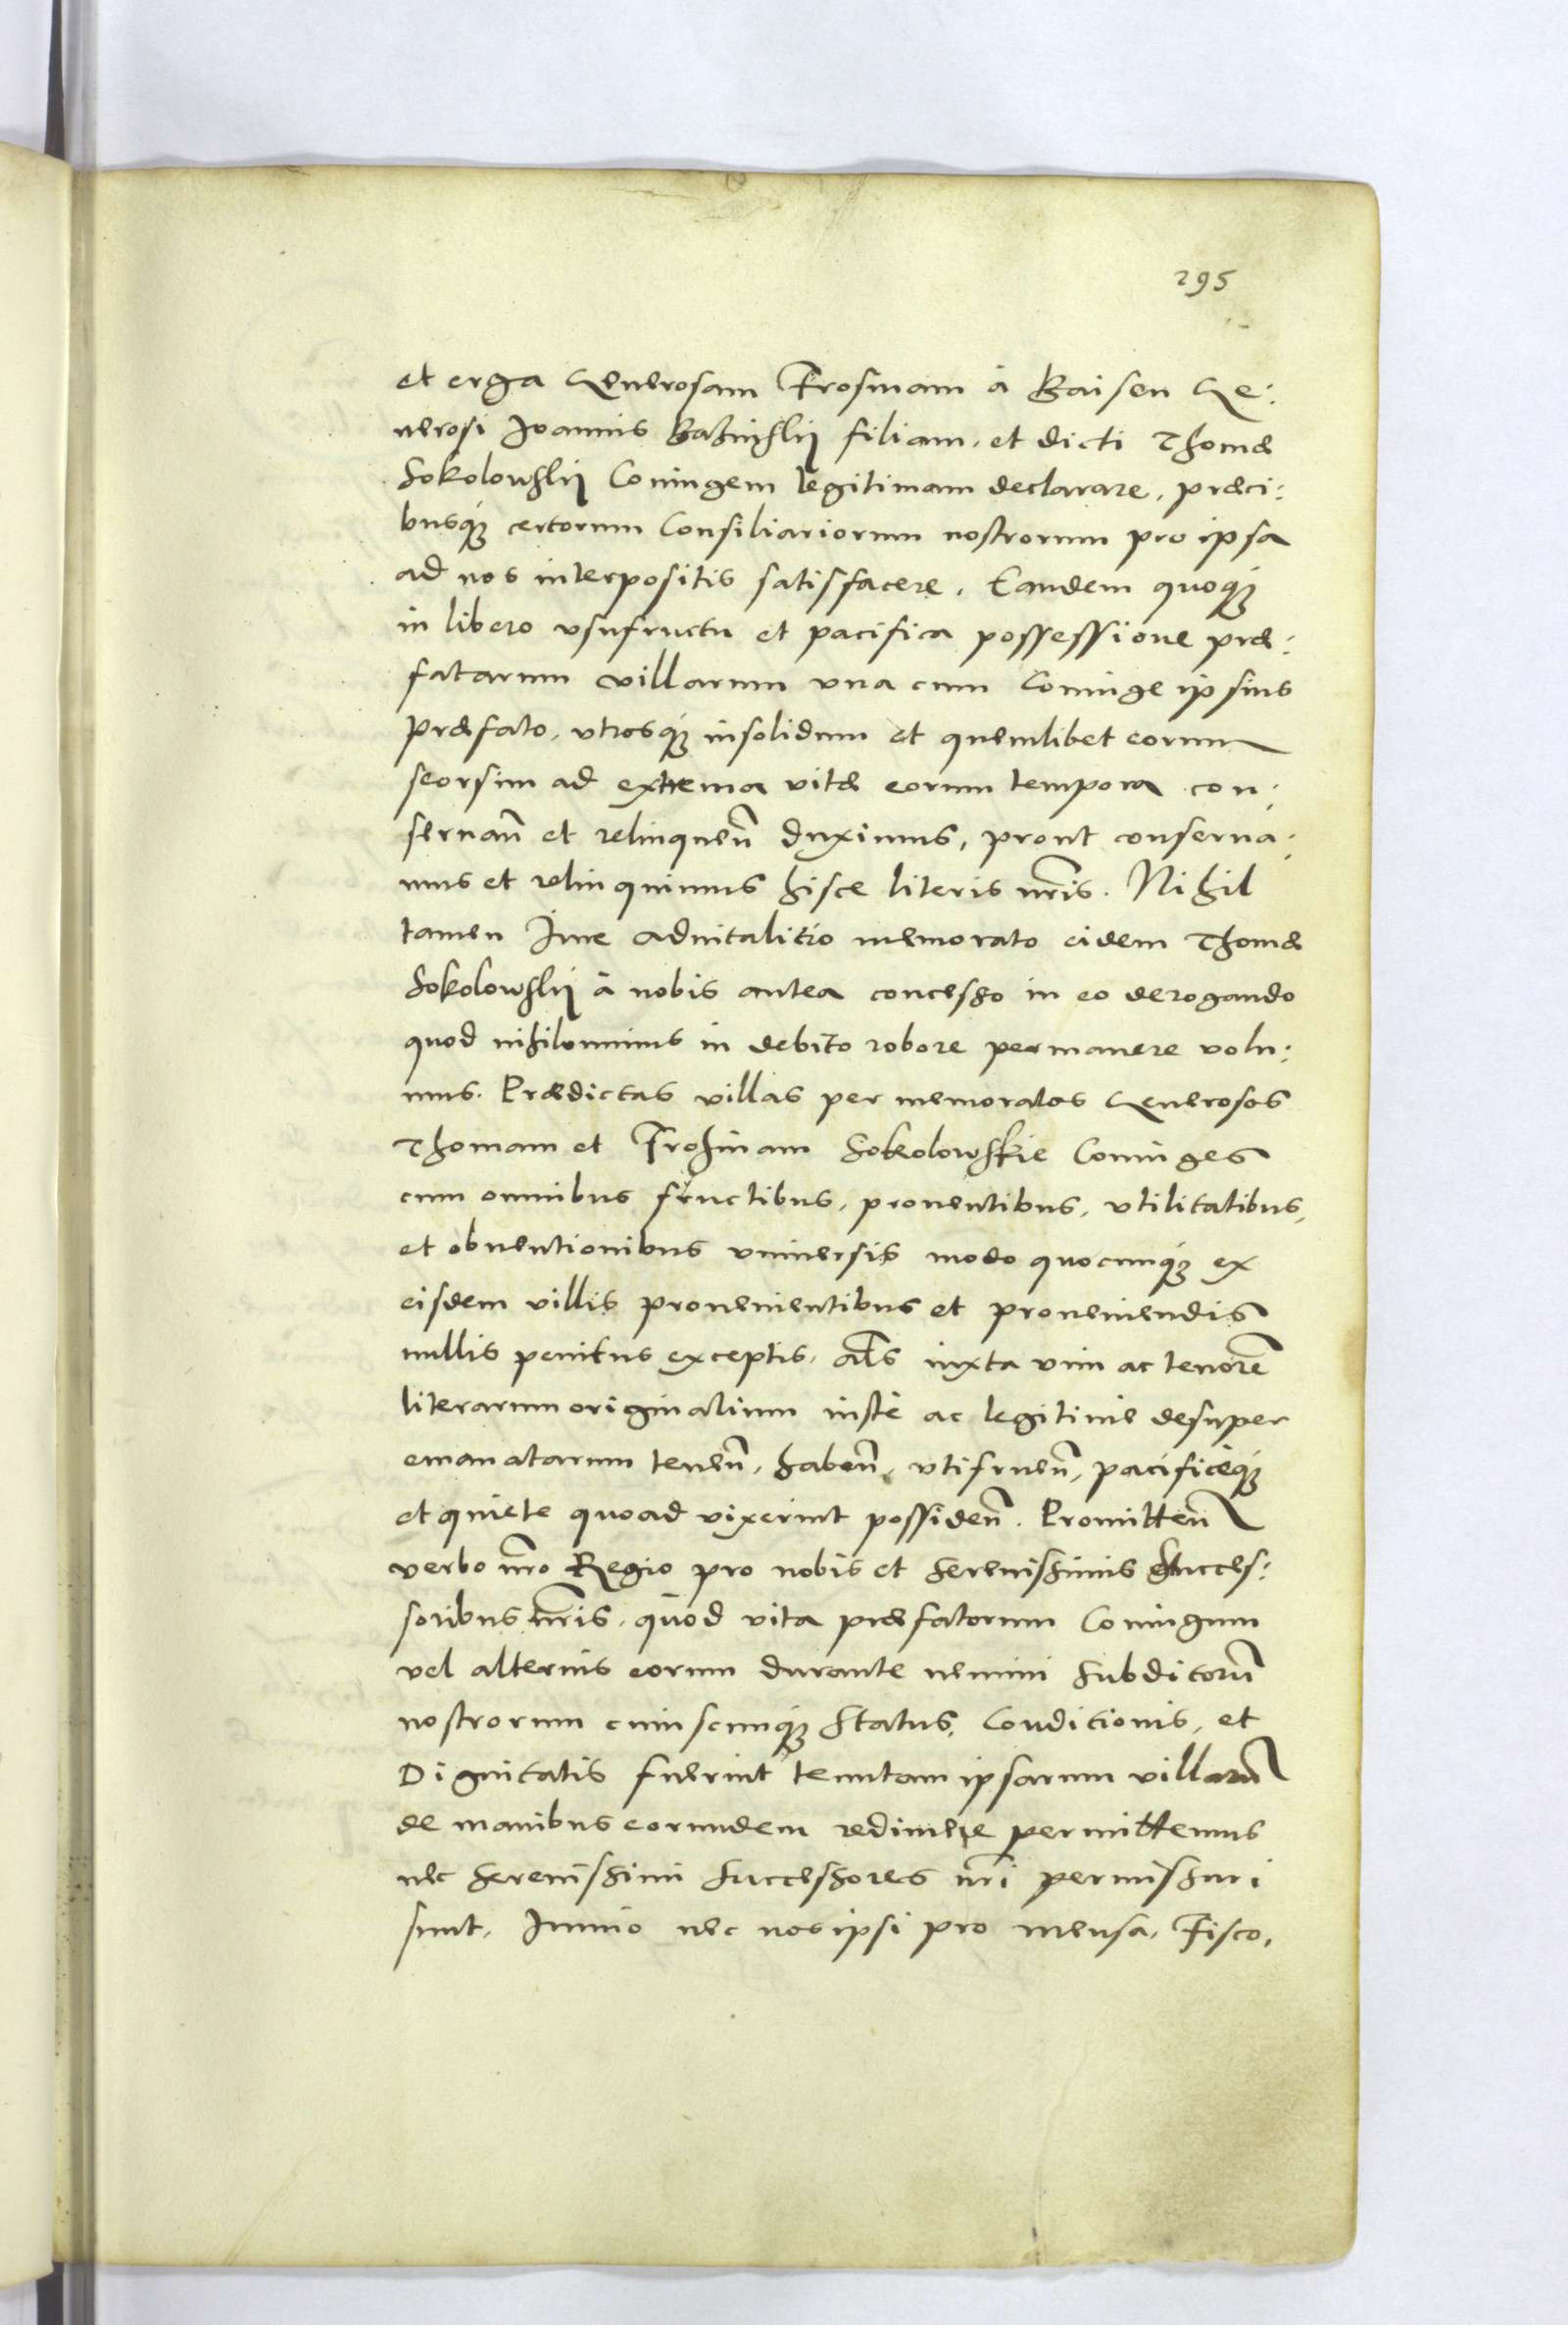 295
et erga Generosam Frosinam à Baisen Ge:
nerosi Ioannis Bazinskij filiam, et dicti Thomæ
Sokolowskij Coniugem legitimam declarare, præci:
busq́ꝫ certorum Consiliariorum nostrorum pro ipsa
ad nos interpositis satisfacere. Eandem quoq́ꝫ
in libero vsufructu et pacifica possessione præ:
fatarum villarum vna cum Coniuge ipsius
præfato, vtrosq́ꝫ insolidum et quemlibet eorum
seorsim ad extrema vitæ eorum tempora con:
seruan̄ et relinquen̄ duximus, prout conserua:
mus et relinquimus hisce literis nr̄is. Nihil
tamen Iure aduitalitio memorato eidem Thomæ
Sokolowskij à nobis antea concesso in eo derogando
quod nihilominus in debito robore permanere volu:
mus. Prædictas villas per memoratos Generosos
Thomam et Frosinam Sokolowskie Coniuges
cum omnibus fructibus, prouentibus, vtilitatibus,
et obuentionibus vniuersis modo quocunq́ꝫ ex
eisdem villis prouenientibus et proueniendis
nullis penitus exceptis, al̄s iuxta vim ac tenorē
literarum originalium iustè ac legitime desuper
emanatarum tenen̄, haben̄, vtifruen̄, pacificèq́ꝫ
et quiete quoad vixerint possiden̄. Promitten̄
verbo nr̄o Regio pro nobis et Serenissimis Succes:
soribus nr̄is, quòd vita præfatorum Coniugum
vel alterius eorum durante nemini subditorū
nostrorum cuiuscunq́ꝫ Status, Conditionis, et
Dignitatis fuerint tenutam ipsarum villarū
de manibus eorundem redimere permittemus
nec Serenissimi Successores nr̄i permissuri
sunt. Immo nec nos ipsi pro mensa, Fisco,